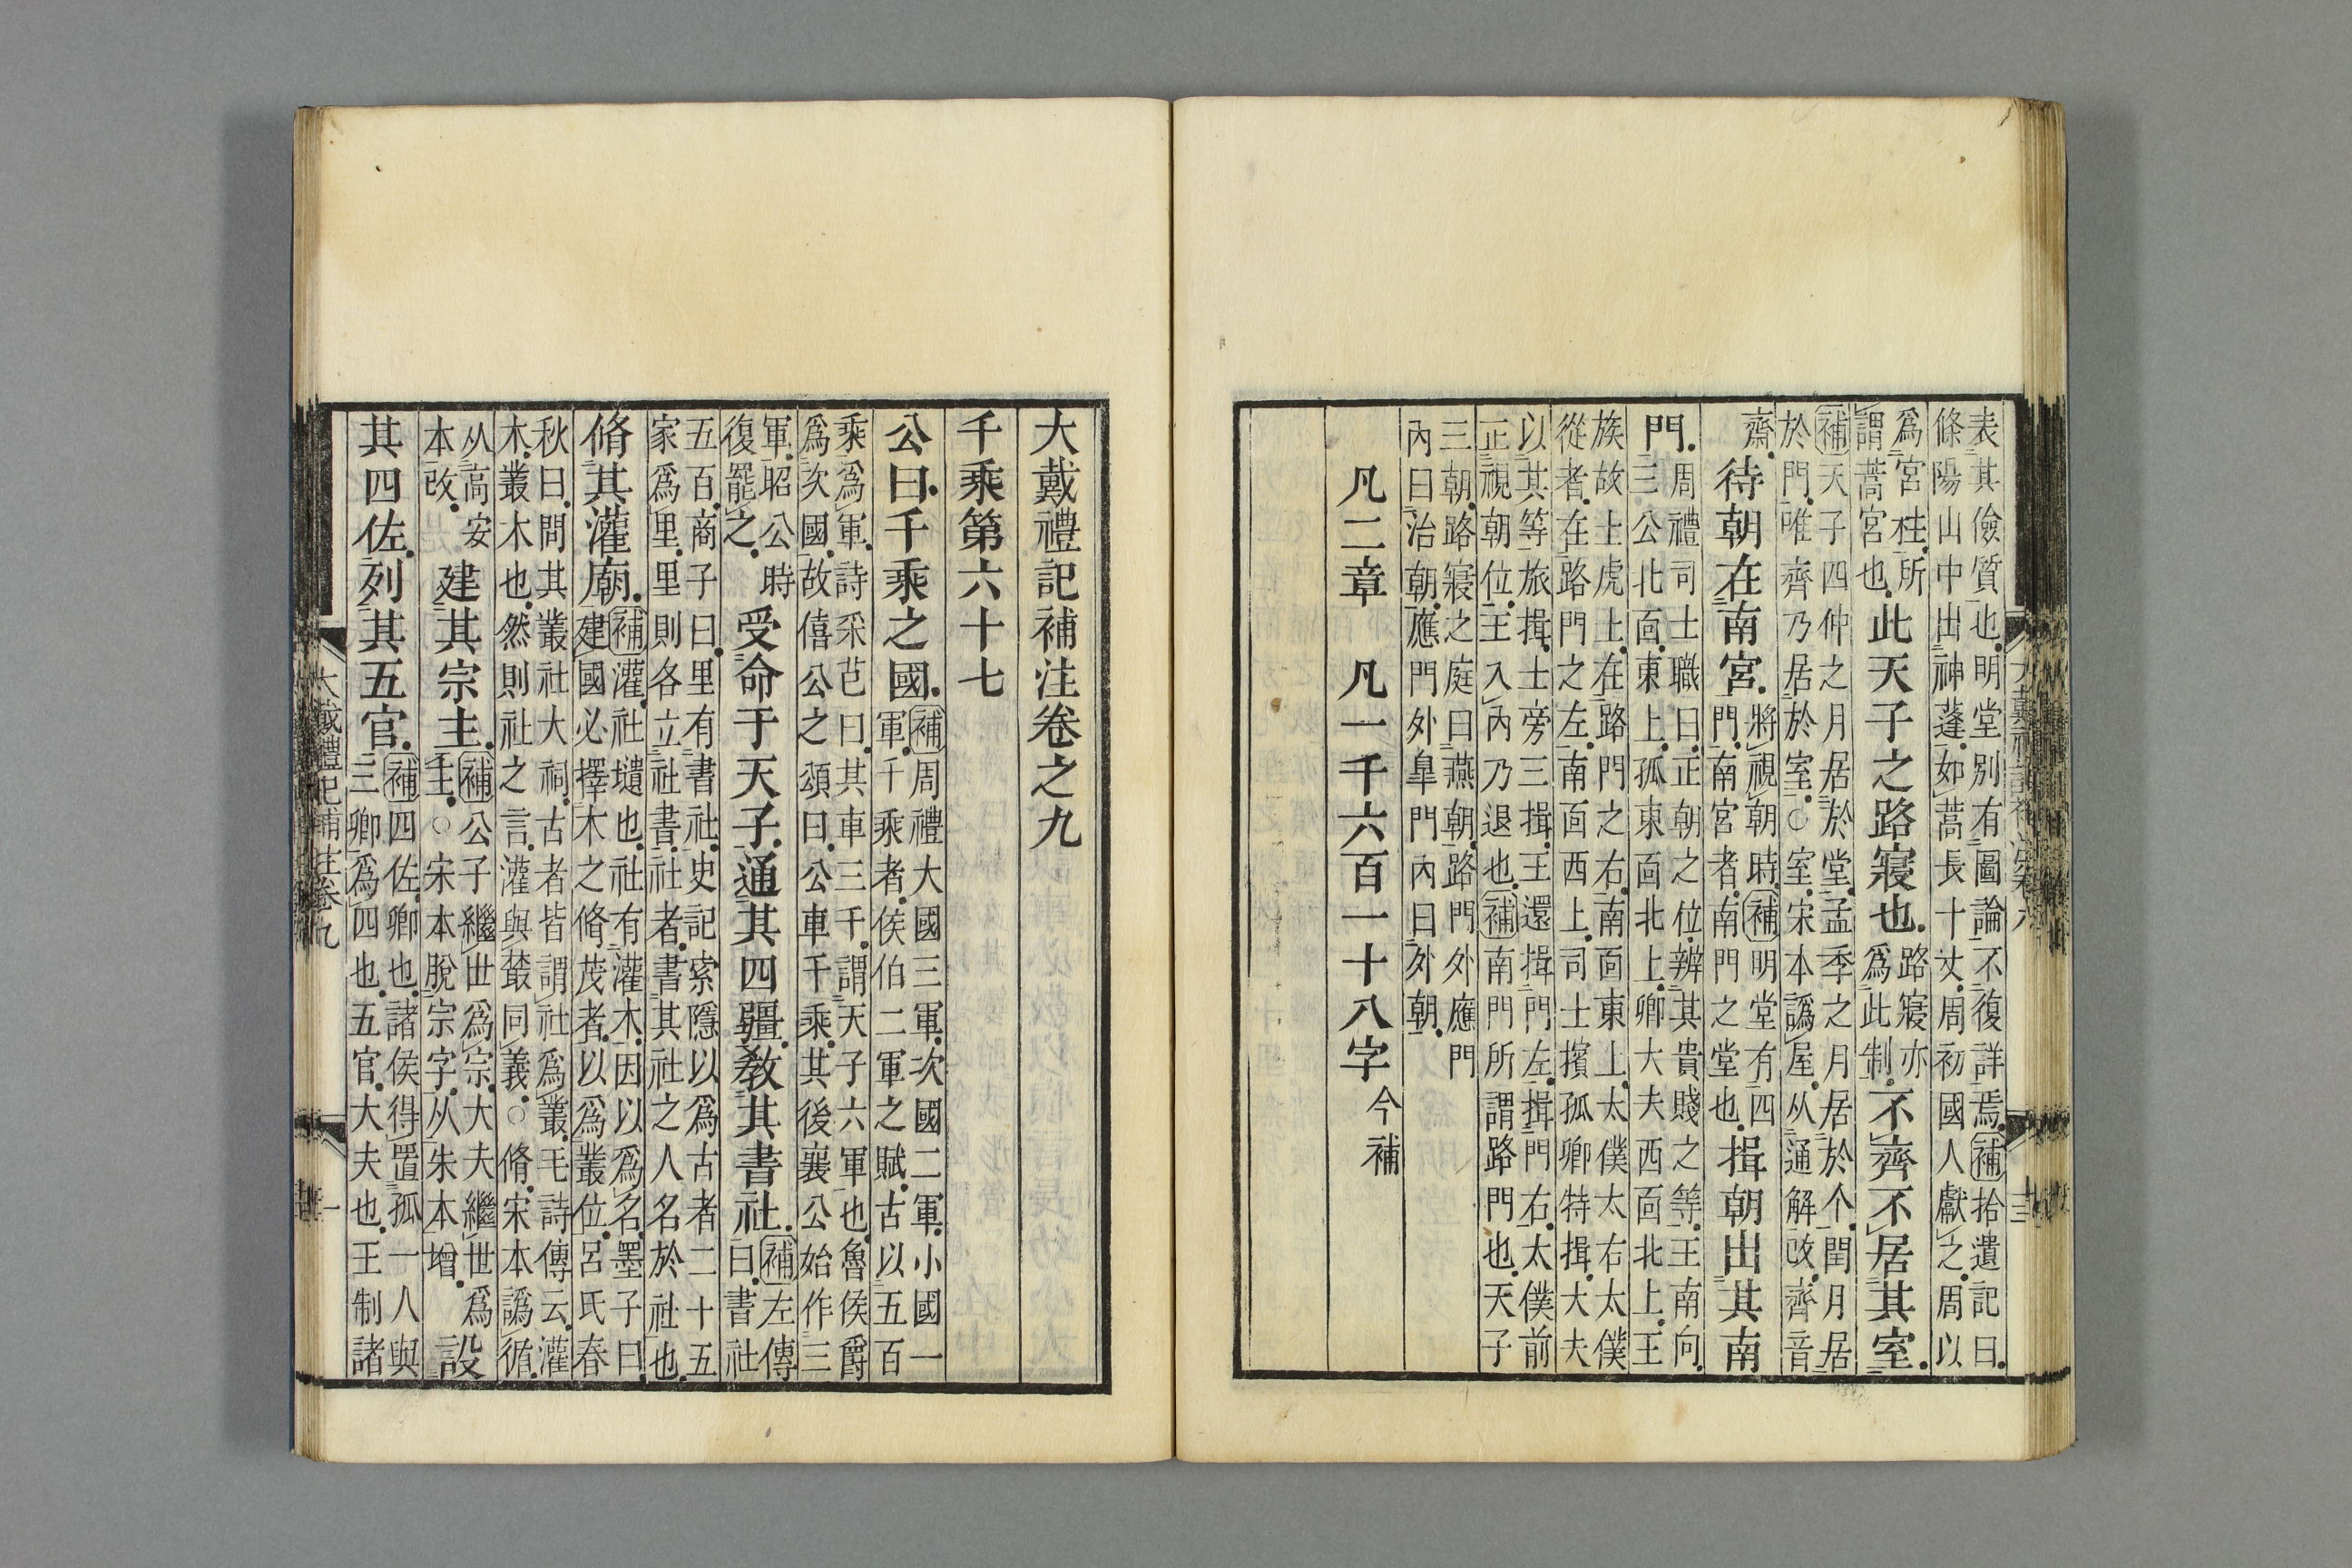 表其儉質也明堂別有圖論不復詳焉補拾遺記曰
條陽山中出神蓬如蒿長十丈周初國人獻之周以
爲宮柱所
謂蒿宮也
此天子之路寢也
路寢亦
爲此制
不齊不居其室
補天子四仲之月居於堂孟季之月居於个閏月居
於門唯齊乃居於室○室宋本譌屋从通解改齊音
齋
待朝在南宮
將視朝時補明堂有四
門南宮者南門之堂也
揖朝出其南
門
周禮司士職曰正朝之位辨其貴賤之等王南向
三公北面東上孤東面北上卿大夫西面北上王
族故士虎士在路門之右南面東上太僕太右太僕
從者在路門之左南面西上司士擯孤卿特揖大夫
以其等旅揖士旁三揖王還揖門左揖門右太僕前
正視朝位王入內乃退也補南門所謂路門也天子
三朝路寢之庭曰燕朝路門外應門
內曰治朝應門外皐門內曰外朝
凡二章 凡一千六百一十八字今補
大戴禮記補注卷之九
千乘第六十七
公曰千乘之國
補周禮大國三軍次國二軍小國一
軍千乘者侯伯二軍之賦古以五百
乘爲軍詩采芑曰其車三千謂天子六軍也魯侯爵
爲次國故僖公之頌曰公車千乘其後襄公始作三
軍昭公時
復罷之
受命于天子通其四疆敎其書社
補左傳
曰書社
五百商子曰里有書社史記索隱以爲古者二十五
家爲里里則各立社書社者書其社之人名於社也
脩其灌廟
補灌社壝也社有灌木因以爲名墨子曰
建國必擇木之脩茂者以爲叢位呂氏春
秋曰問其叢社大祠古者皆謂社爲叢毛詩傳云灌
木叢木也然則社之言灌與藂同義○脩宋本譌循
从高安
本改
建其宗主
補公子繼世爲宗大夫繼世爲
主○宋本脫宗字从朱本增
設
其四佐列其五官
補四佐卿也諸侯得置孤一人與
三卿爲四也五官大夫也王制諸
大戴禮記補注卷九
一